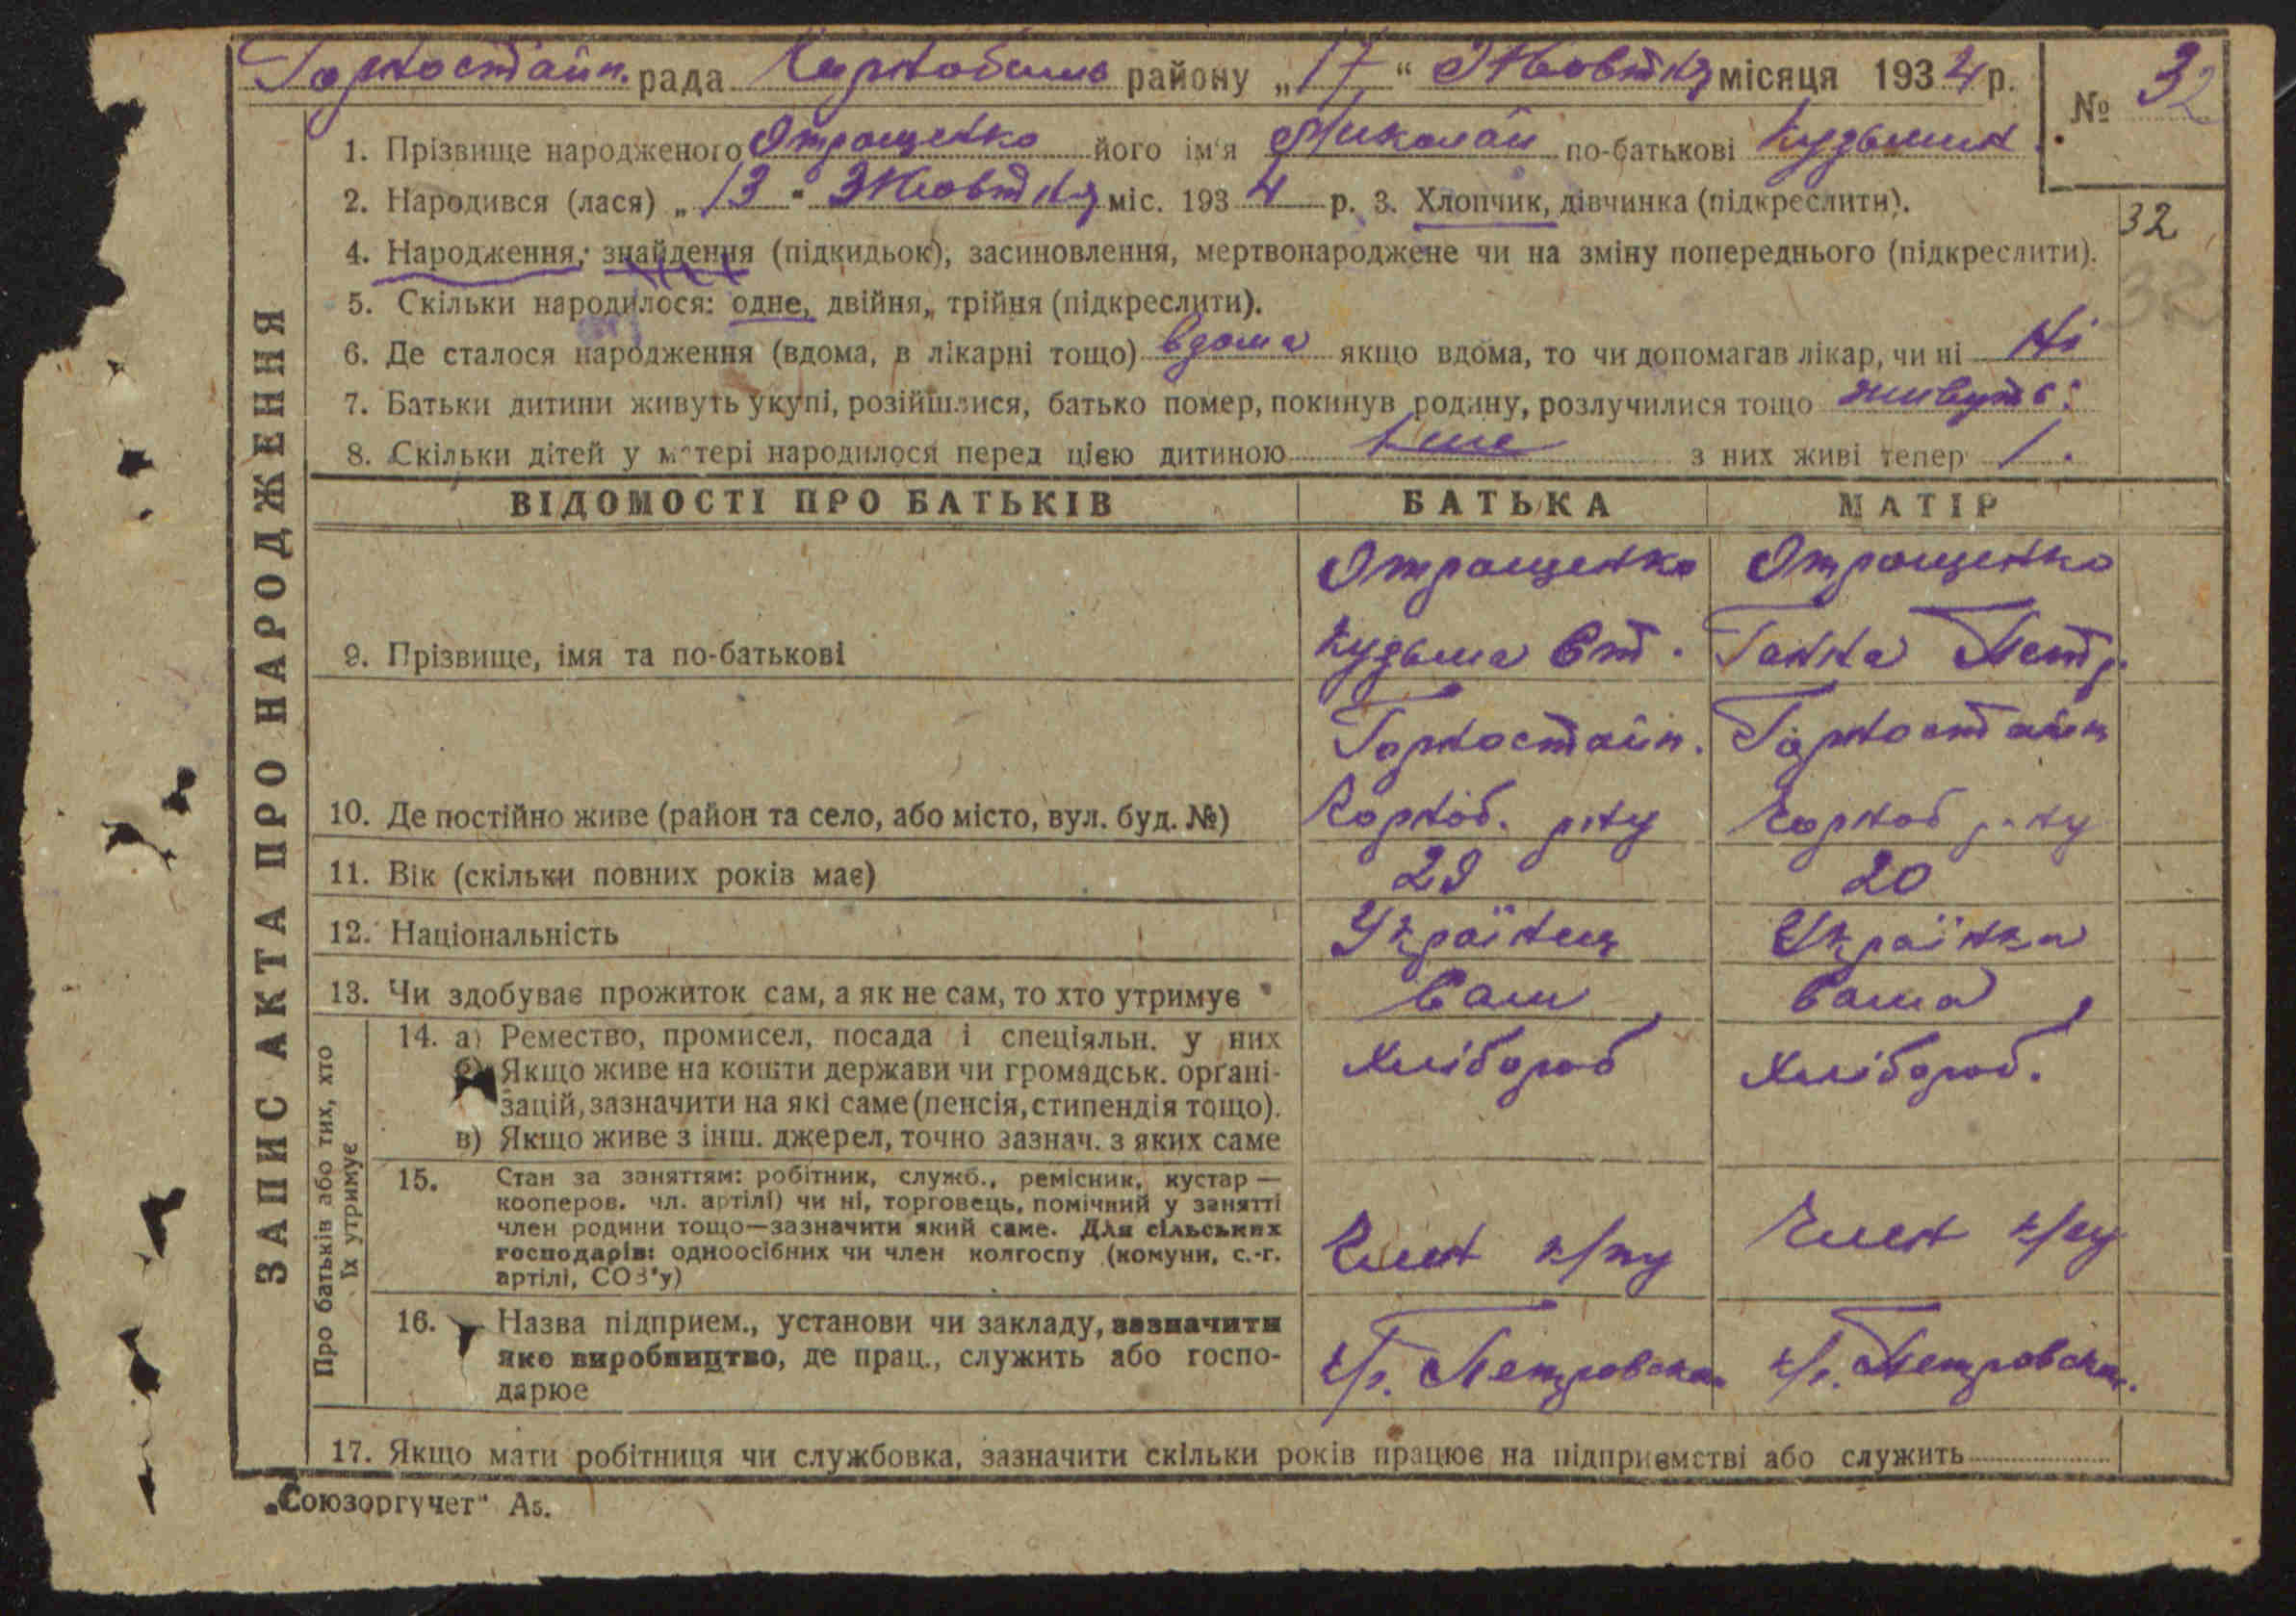 Горностайп. рада Чорнобиль району „17“ Жовтня місяця 1934 р.
№ 32
1. Прізвище народженого Отрощенко його ім'я Миколай по-батькові Кудьмин.
2. Народився (лася) „13" Жовтня міс. 1934 р. 3. Хлопчик, дівчинка (підкреслити).
32
4. Народження, знайдення (підкидьок), засиновлення, мертвонароджене чи на зміну попереднього (підкреслити).
32
5. Скільки народилося: одне, двійня, трійня (підкреслити).
6. Де сталося народження (вдома, в лікарні тощо) вдома якщо вдома, то чи допомагав лікар, чи ні Ні
7. Батьки дитини живуть укупі, розійшлися, батько помер, покинув родину, розлучилися тощо живуть.
8. Скільки дітей у матері народилося перед цією дитиною з них живі тепер 1.
ЗАПИС АКТА ПРО НАРОДЖЕННЯ
ВІДОМОСТІ ПРО БАТЬКІВ БАТЬКА МАТІР
Отрощенко Отрощенко
9. Прізвище, імя та по-батькові Кудьма Ганна Петр.
Горностайп. Горностайп
10. Де постійно живе (район та село, або місто, вул. буд. №) Чорноб. р-ну Чорноб р-ну
11. Вік (скільки повних років має) 29 20
12. Національність Українец Українка
13. Чи здобуває прожиток сам, а як не сам, то хто утримує Сам Сама
Про батьків або тих, хто їх утримує
14. а) Ремество, промисел, посада і спеціяльн. у них
б) Якщо живе на кошти держави чи громадськ. орґані- Хлібороб Хлібороб.
зацій, зазначити на які саме (пенсія, стипендія тощо).
в) Якщо живе з інш. джерел, точно зазнач. з яких саме
15. Стан за заняттям: робітник, служб., ремісник, кустар —
кооперов. чл. артілі) чи ні, торговець, помічний у занятті
член родини тощо—зазначити який саме. Для сільських
господарів: одноосібних чи член колгоспу (комуни, с.-г. Член к/гу Член к/гу
артілі, СОЗ'у)
16. Назва підприєм., установи чи закладу, зазначити
яке виробництво, де прац., служить або госпо- к/г. Петровськ. к/г. Петровськ.
дарює
17. Якщо мати робітниця чи службовка, зазначити скільки років працює на підприємстві або служить
„Союзоргучет“ А5.